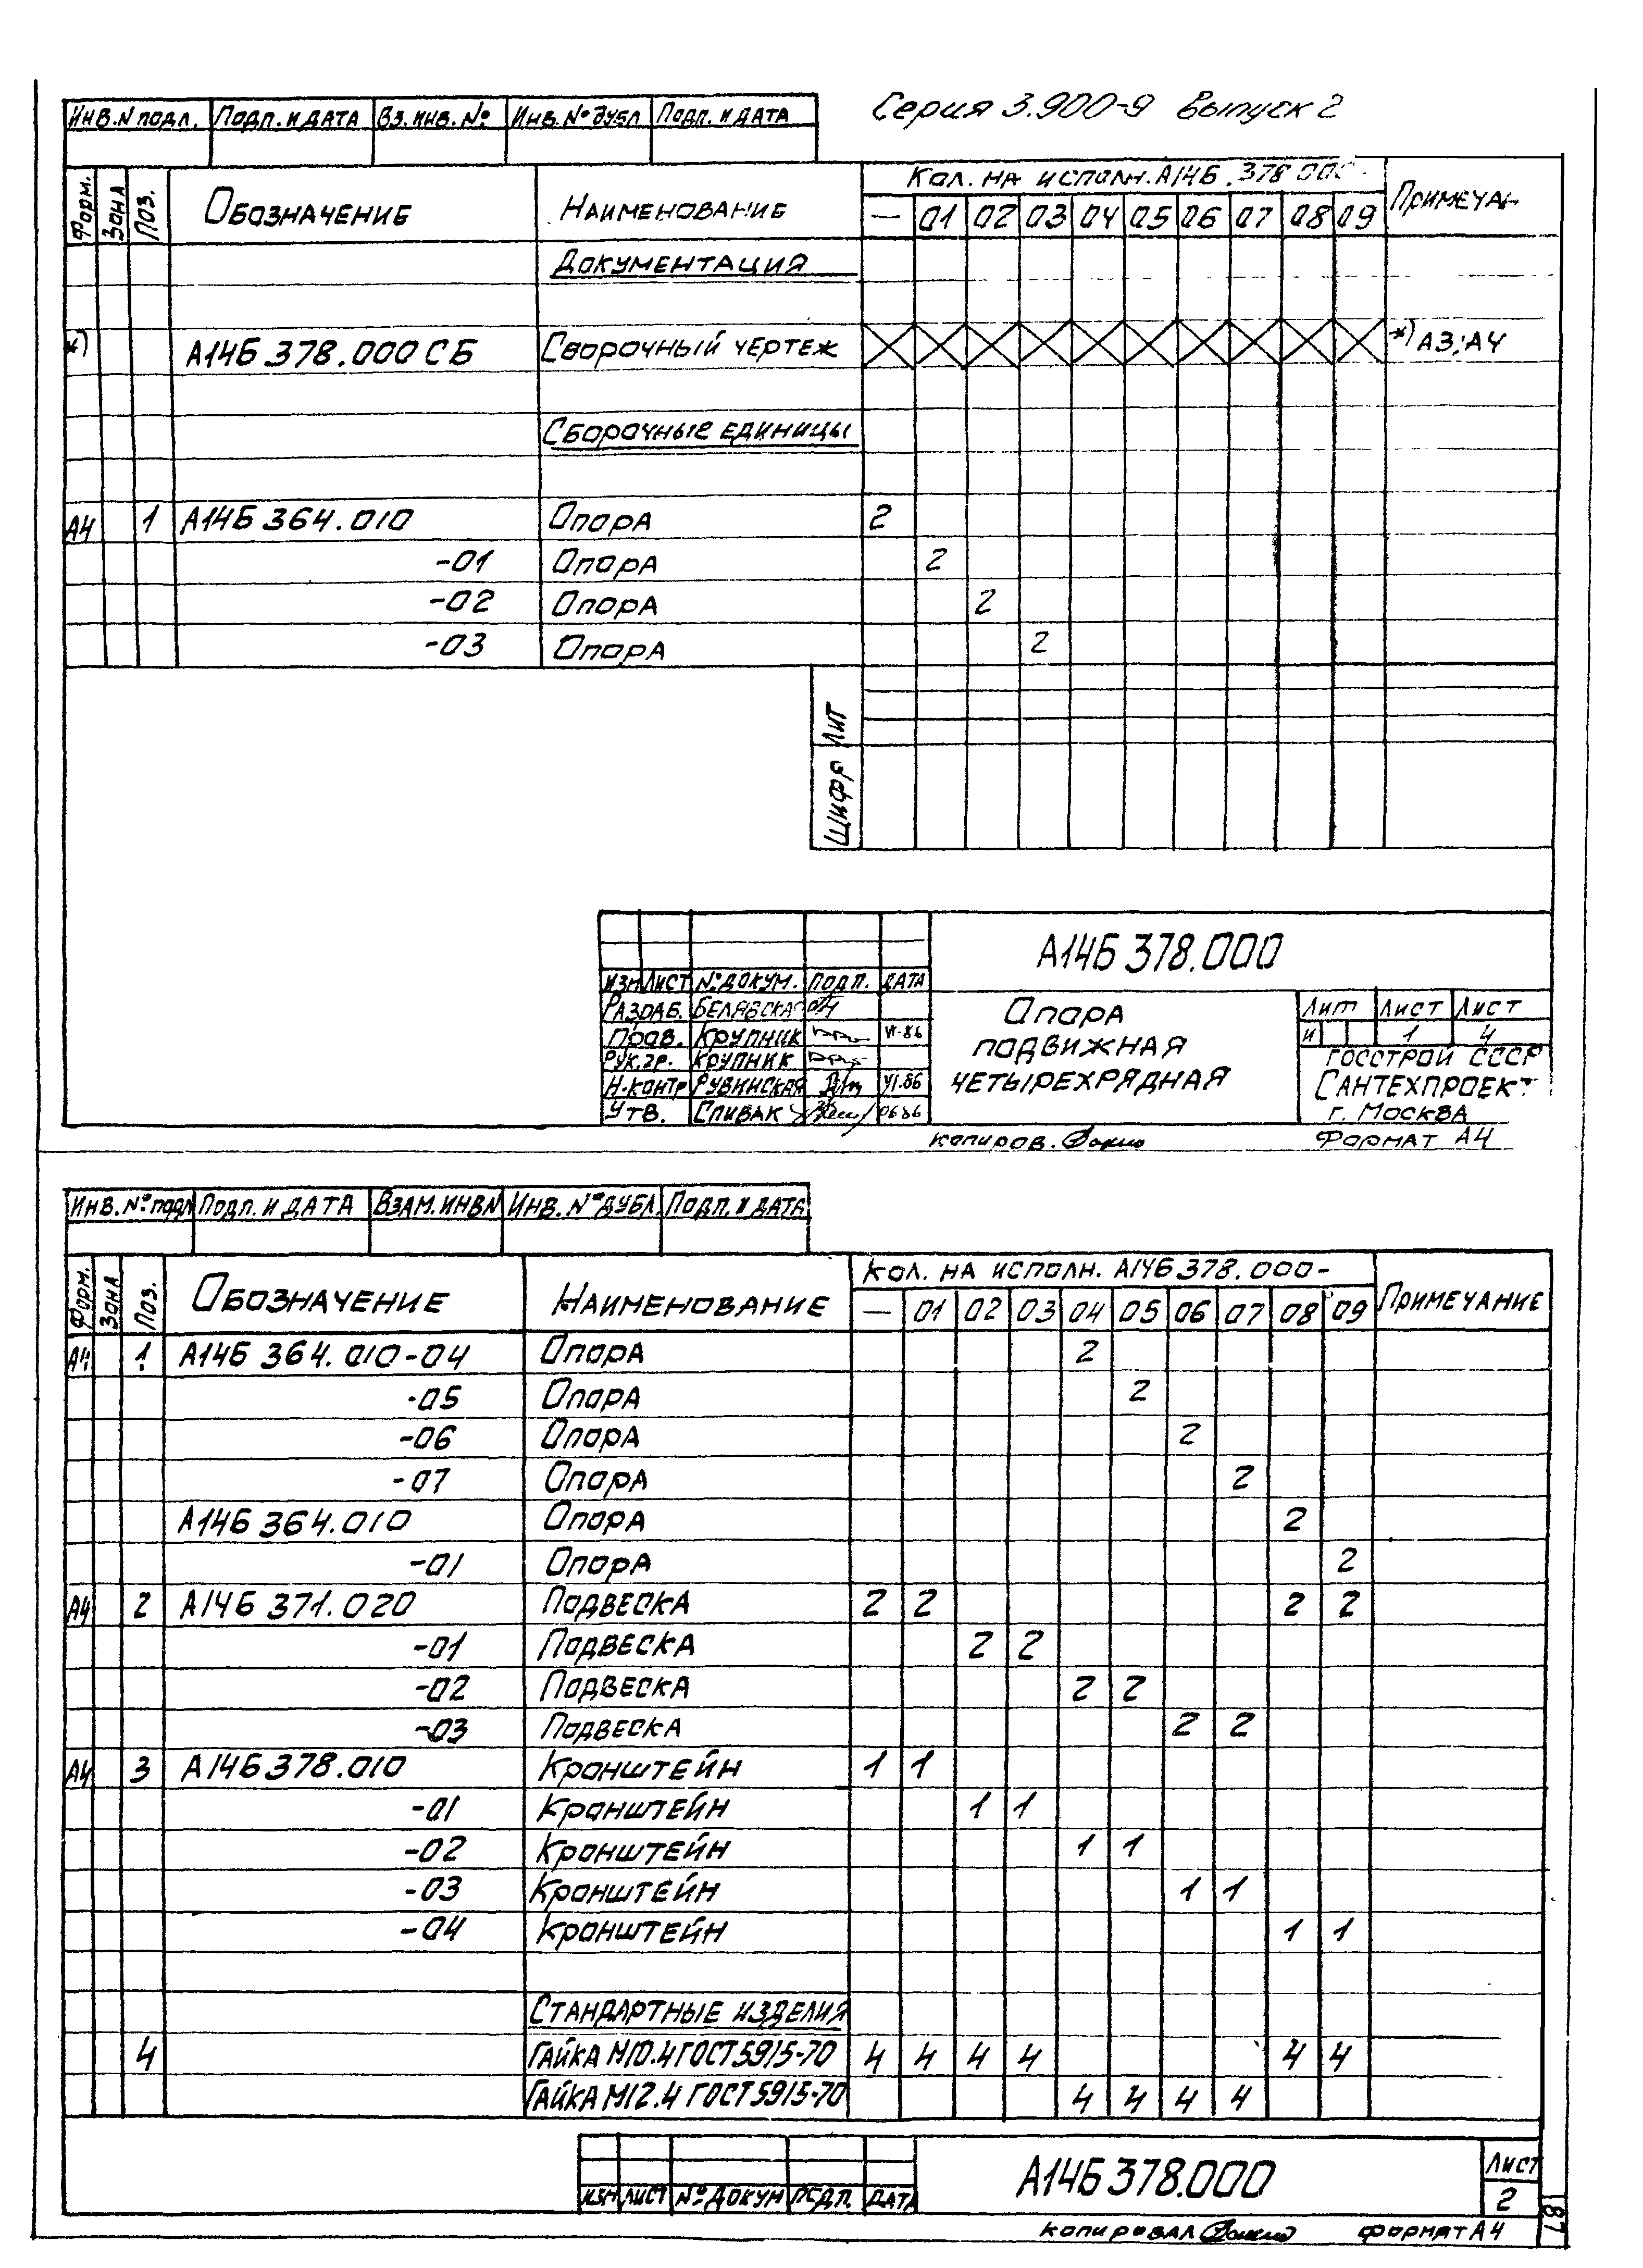 Серия 3.900-9 Выпуск 2
Инв.N подл. Подп. и дата Вз. инв. № Инв. № дубл Подп. и дата
Форм. Зона Поз. Обозначение Наименование Кол. на исполн. А14Б.378.000- Примечан
— 01 02 03 04 05 06 07 08 09
Документация
*) А14Б 378.000 СБ Сборочный чертеж *) А3; А4
Сборочные единицы
А4 1 А14Б 364.010 Опора 2
-01 Опора 2
-02 Опора 2
-03 Опора 2
Лит
Шифр
А14Б 378.000
Изм Лист № докум. Подп. Дата
Разраб. Белявская
Пров. Крупник VI-86
Рук.гр. Крупник
Н.контр Рувинская VI.86
Утв. Спивак 0686
Опора
подвижная
четырехрядная
Лит Лист Лист
И 1 4
Госстрой СССР
Сантехпроект
г. Москва
копиров. Формат А4
Инв. № подл Подп. и дата Взам. инв N Инв. № дубл. Подп. и дата
Форм. Зона Поз. Обозначение Наименование Кол. на исполн. А14Б 378.000- Примечание
— 01 02 03 04 05 06 07 08 09
А4 1 А14Б 364.010-04 Опора 2
-05 Опора 2
-06 Опора 2
-07 Опора 2
А14Б 364.010 Опора 2
-01 Опора 2
А4 2 А14Б 371.020 Подвеска 2 2 2 2
-01 Подвеска 2 2
-02 Подвеска 2 2
-03 Подвеска 2 2
А4 3 А14Б 378.010 Кронштейн 1 1
-01 Кронштейн 1 1
-02 Кронштейн 1 1
-03 Кронштейн 1 1
-04 Кронштейн 1 1
Стандартные изделия
4 Гайка М10.4 ГОСТ 5915-70 4 4 4 4 4 4
Гайка М12.4 ГОСТ 5915-70 4 4 4 4
Изм Лист № докум Подп. Дата
А14Б 378.000
Лист
2
копировал формат А4
87